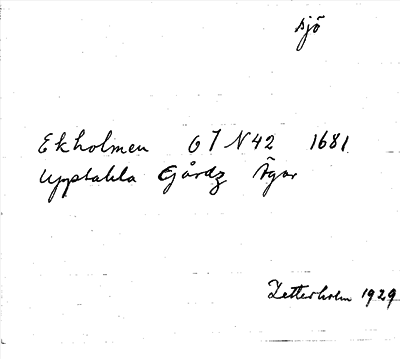 sjö
Ekholmen G7 N42 1681
Upptakla Gårdz Ägor
Zetterholm 1929